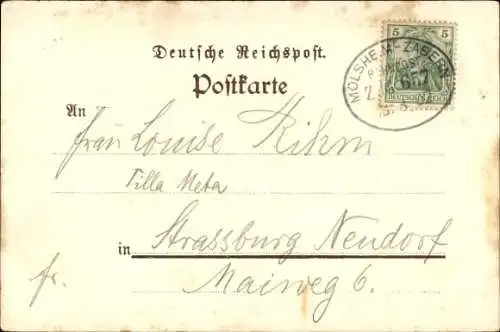 Deutsche Reichspost.
Postkarte
5 5
MOLSHEIM-ZABERN
BAHNPOST
ZUG 657
DEUTSCHES REICH
An
Frau Louise Rihm
Villa Meta
in Strassburg Neudorf
fr. Maiweg 6.